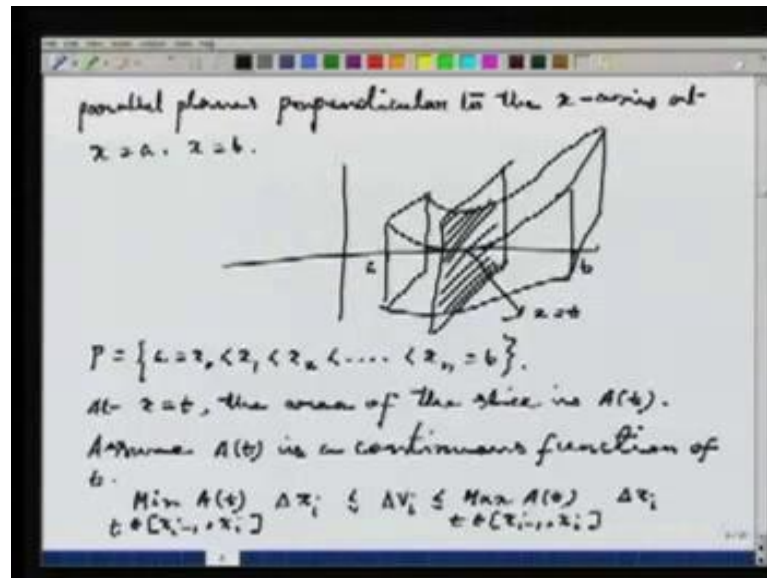 parallel planes perpendicular to the x-axis at
x = a, x = b.
a
b
x = t
P = {a = x₀ < x₁ < x₂ < .... < xₙ = b}.
At x = t, the area of the slice is A(t).
Assume A(t) is a continuous function of
t.
Min A(t) Δxᵢ ≤ ΔVᵢ ≤ Max A(t) Δxᵢ
t ∈ [xᵢ₋₁, xᵢ] t ∈ [xᵢ₋₁, xᵢ]